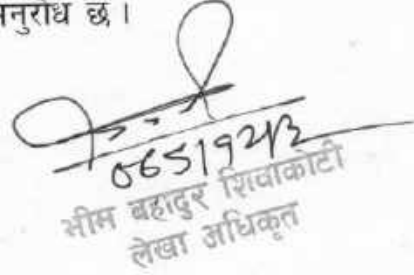 नुरोध छ ।
065/12/2
भीम बहादुर शिवाकोटी
लेखा अधिकृत